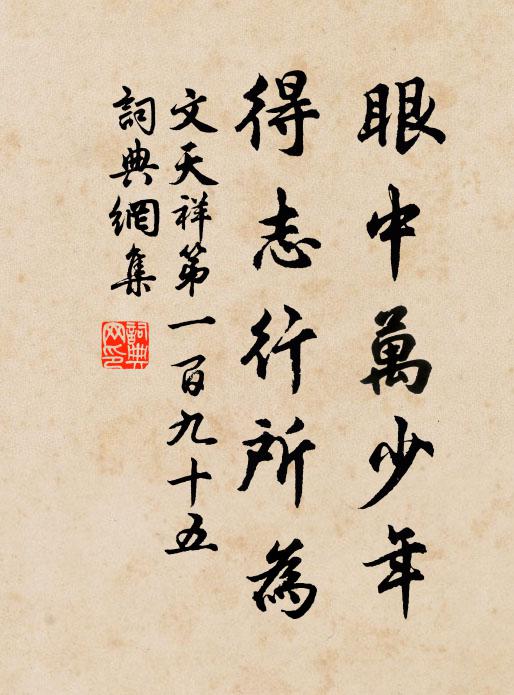 眼中萬少年
得志行所為
文天祥第一百九十五
詞典網集
詞典網印